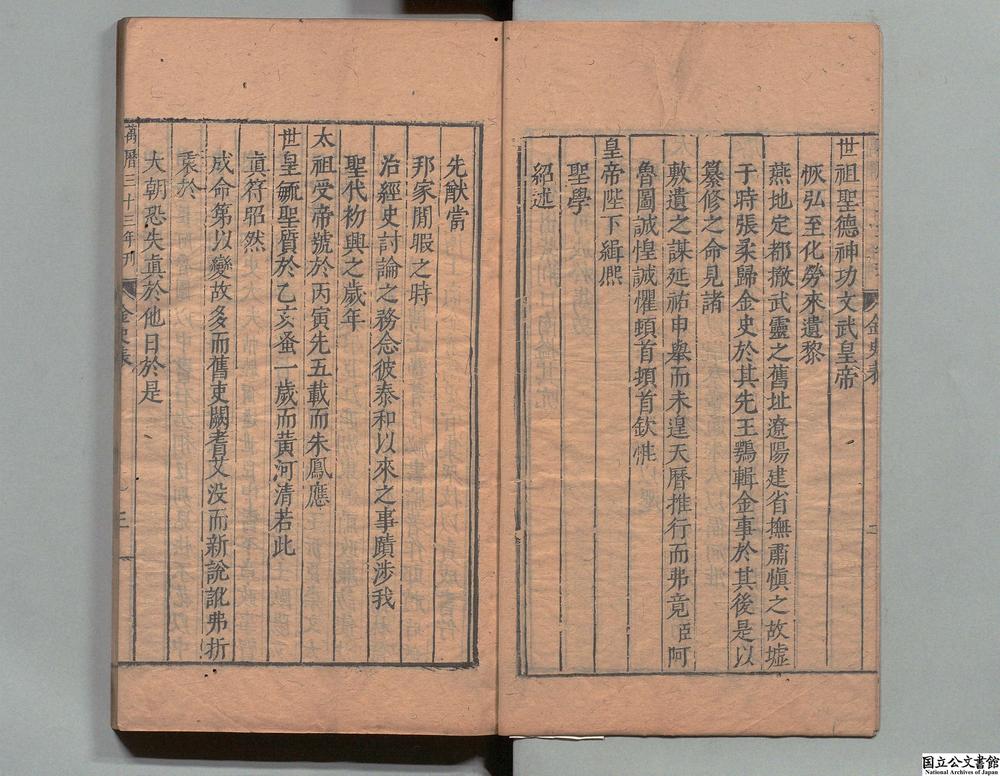 世祖聖德神功文武皇帝
恢弘至化勞來遺黎
燕地定都撤武靈之舊址遼陽建省撫肅愼之故墟
于時張柔歸金史於其先王鶚輯金事於其後是以
纂修之命見諸
敷遺之謀延祐申舉而未遑天曆推行而弗竟臣阿
魯圖誠惶誠懼頓首頓首欽惟
皇帝陛下緝熈
聖學
紹述
金史表
二
先猷當
邦家閒暇之時
治經史討論之務念彼泰和以來之事蹟涉我
聖代初興之歲年
太祖受帝號於丙寅先五載而朱鳳應
世皇毓聖質於乙亥蚤一歲而黄河清若此
眞符昭然
成命第以變故多而舊吏闕耆艾没而新說訛弗折
衷於
大朝恐失眞於他日於是
萬曆三十三年刋
金史表
三
国立公文書館
National Archives of Japan